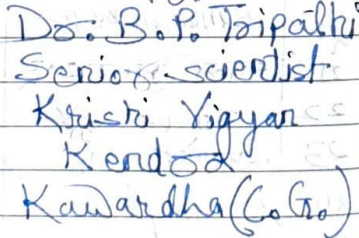 Dr. B.P. Tripathi
Senior scientist
Krishi Vigyan
Kendra
Kawardha (C.G.)